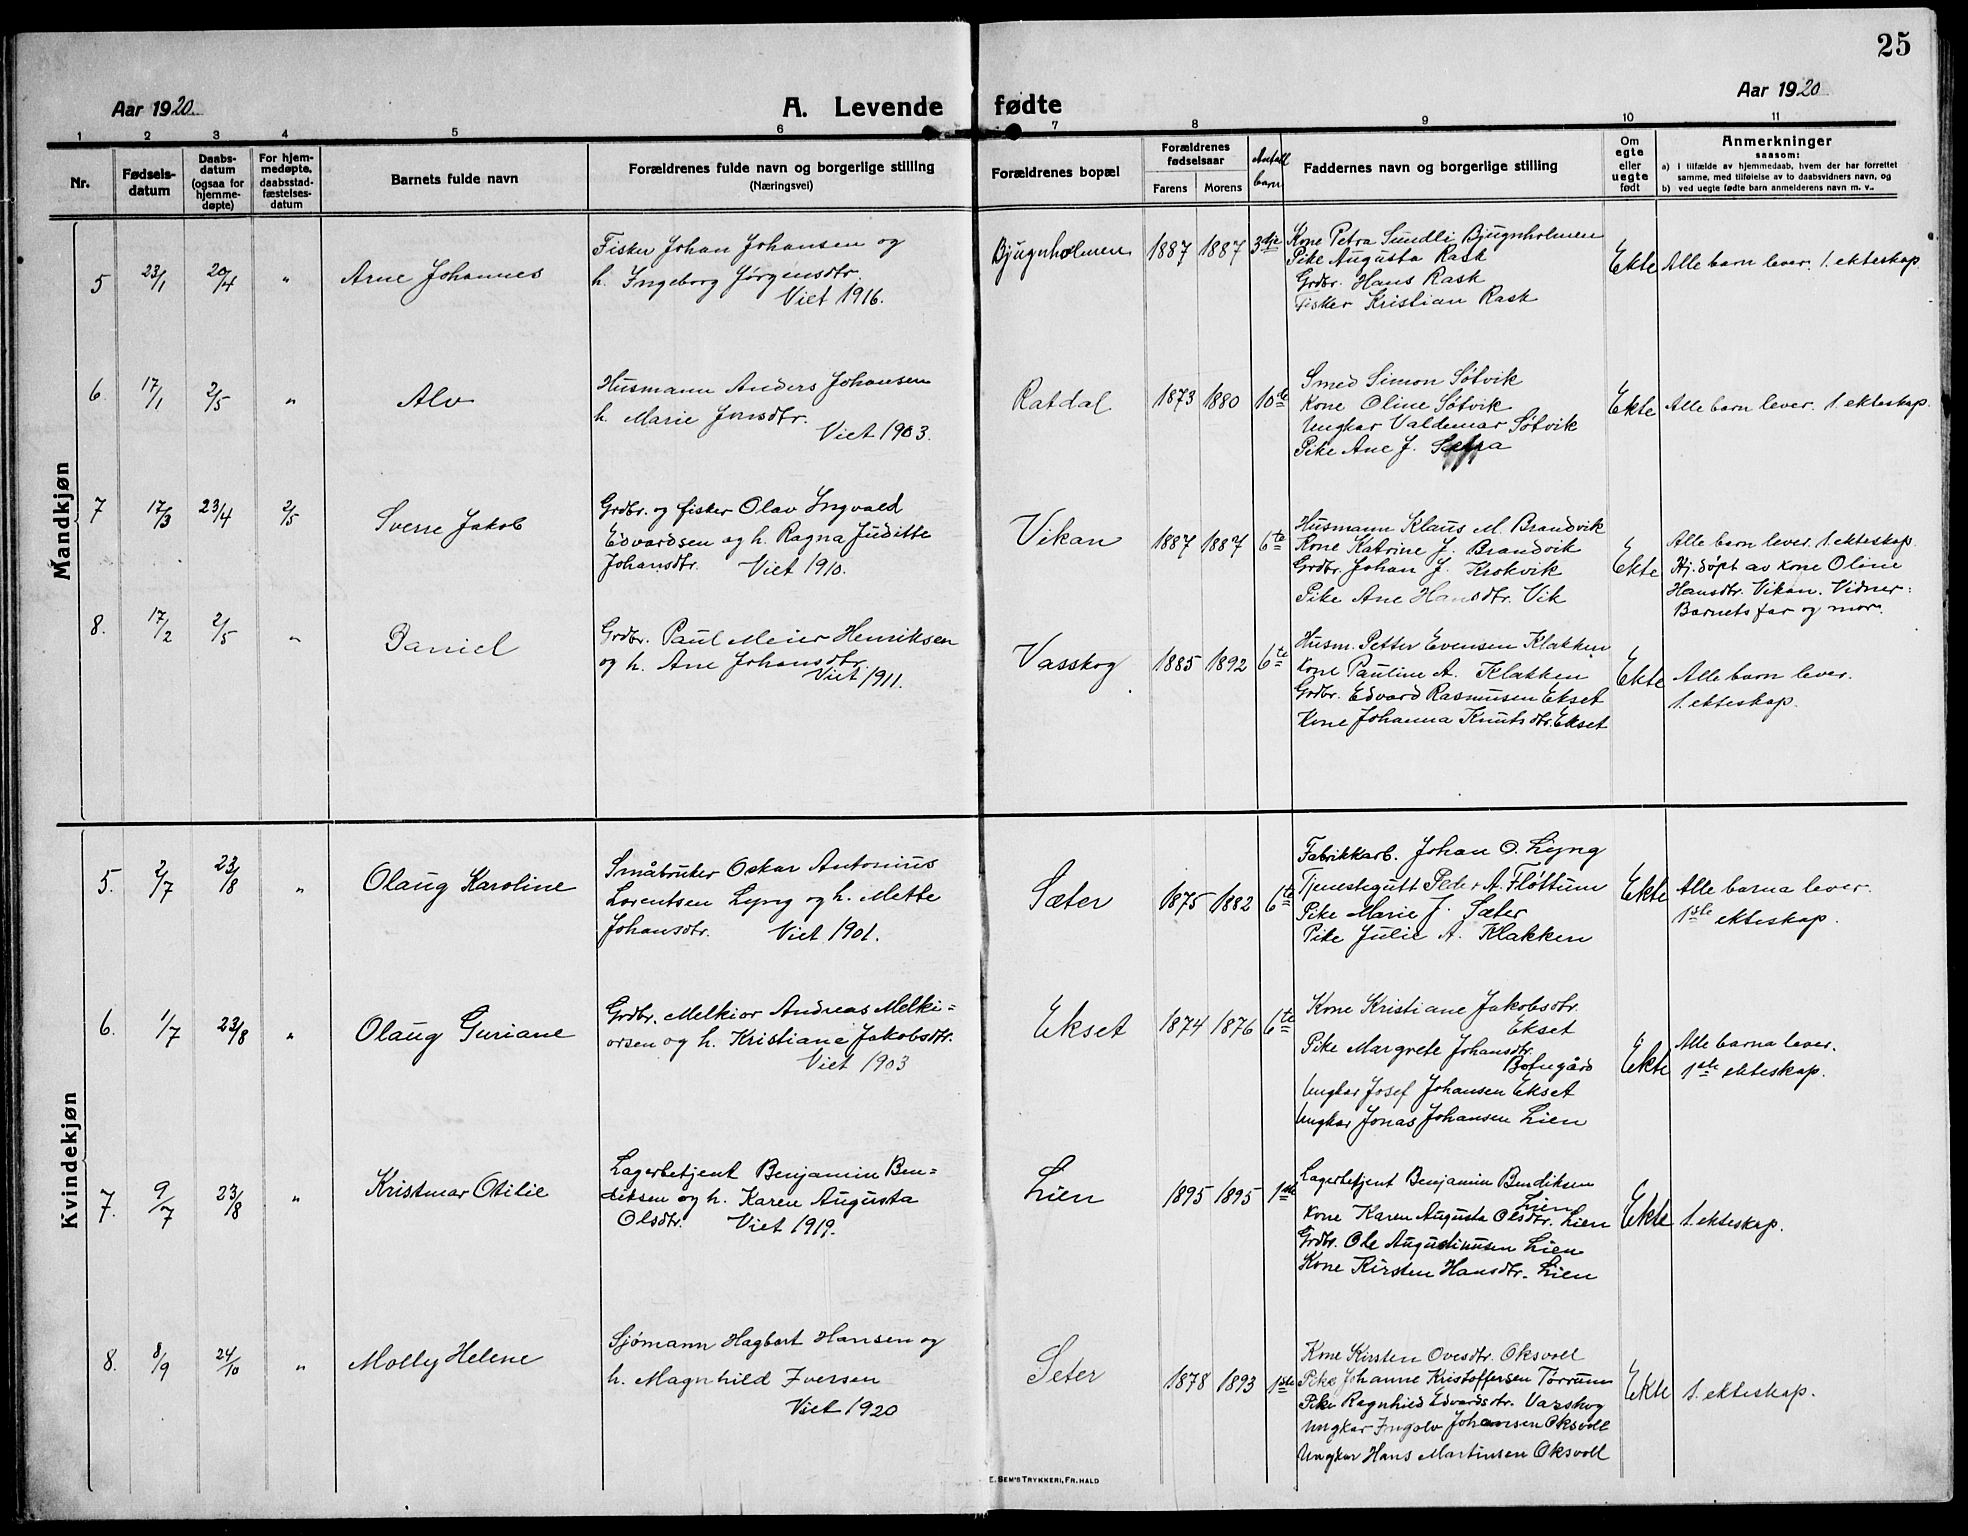 25
Aar 1920
A. Levende fødte
Aar 1920
1 2 3 4 5 6 7 8 9 10 11
Nr.
Fødselsdatum
Daabsdatum (ogsaa for hjemmedøpte)
For hjemmedøpte, daabsstadfæstelsesdatum
Barnets fulde navn
Forældrenes fulde navn og borgerlige stilling
(Næringsvei)
Forældrenes bopæl
Forældrenes fødselsaar
Farens Morens
Antall barn
Faddernes navn og borgerlige stilling
Om egte eller uegte født
Anmerkninger
saasom:
a) i tilfælde av hjemmedaab, hvem der har forrettet
samme, med tilføielse av to daabsvidners navn, og
b) ved uegte fødte barn anmelderens navn m. v..
Mandkjøn
5 23/1 20/4 " Arne Johannes
Fisker Johan Johansen og
h. Ingeborg Jørgensdtr.
Viet 1916.
Bjugnholmen 1887 1887 3dje
Kone Petra Sundli Bjugnholmen
Pike Augusta Rask
Grdbr. Hans Rask
Fisker Kristian Rask
Ekte Alle barn lever. 1. ekteskap.
6 17/1 2/5 " Alv
Husmann Anders Johansen
h. Marie Jonsdtr.
Viet 1903.
Ratdal 1873 1880 10de
Smed Simon Søtvik
Kone Oline Søtvik
Ungkar Valdemar Søtvik
Pike Ane J.
Ekte Alle barn lever. 1. ekteskap.
7 17/3 23/4 2/5 Sverre Jakob
Grdbr. og fisker Olav Ingvald
Edvardsen og h. Ragna Juditte
Johansdtr. Viet 1910.
Vikan 1887 1887 6te
Husmann Klaus M. Brandvik
Kone Katrine J. Brandvik
Grdbr. Johan J. Krokvik
Pike Ane Hansdtr. Vik
Ekte
Alle barn lever. 1. ekteskap.
Hj.døpt av kone Oline
Hansdtr. Vikan. Vidner:
Barnets far og mor.
8. 17/2 2/5 " Daniel
Grdbr. Paul Meier Henriksen
og h. Ane Johansdtr.
Viet 1911.
Vasskog 1885 1892 6te
Husm. Petter Evensen Klakken
Kone Pauline A. Klakken
Grdbr. Edvard Rasmusen Ekset
Kone Johanna Knutsdtr. Ekset
Ekte
Alle barn lever.
1. ekteskap.
Kvindekjøn
5. 2/7 23/8 " Olaug Karoline
Småbruker Oskar Antonius
Lorentsen Lyng og h. Mette
Johansdtr. Viet 1901.
Sæter 1875 1882 6te
Fabrikkarb. Johan O. Lyng
Tjenestegutt Peder A. Fløttum
Pike Marie J. Sæter
Pike Julie A. Klakken
Ekte
Alle barna lever.
1ste ekteskap.
6. 1/7 23/8 " Olaug Guriane
Grdbr. Melkior Andreas Melki=
orsen og h. Kristiane Jakobsdtr.
Viet 1903
Ekset 1874 1876 6te
Kone Kristiane Jakobsdtr.
Ekset
Pike Margrete Johansdtr.
Botngård
Ungkar Josef Johansen Ekset
Ungkar Jonas Johansen Lien
Ekte
Alle barna lever.
1ste ekteskap.
7. 9/7 23/8 " Kristmar Otilie
Lagerbetjent Benjamin Ben=
diksen og h. Karen Augusta
Olsdtr. Viet 1919.
Lien 1895 1895 1ste
Lagerbetjent Benjamin Bendiksen
Lien
Kone Karen Augusta Olsdtr. Lien
Grdbr. Ole Augustinusen Lien
Kone Kirsten Hansdtr. Lien
Ekte 1. ekteskap.
8. 8/9 24/10 " Molly Helene
Sjømann Hagbart Hansen og
h. Magnhild Iversen
Viet 1920
Seter 1878 1893 1ste
Kone Kirsten Ovesdtr. Oksvoll
Pike Johanne Kristoffersen Tørrum
Pike Ragnhild Edvardsdtr. Varskog
Ungkar Ingolv Johansen Oksvoll
Ungkar Hans Martinsen Oksvoll
Ekte 1. ekteskap.
E. SEM'S TRYKKERI, FR.HALD